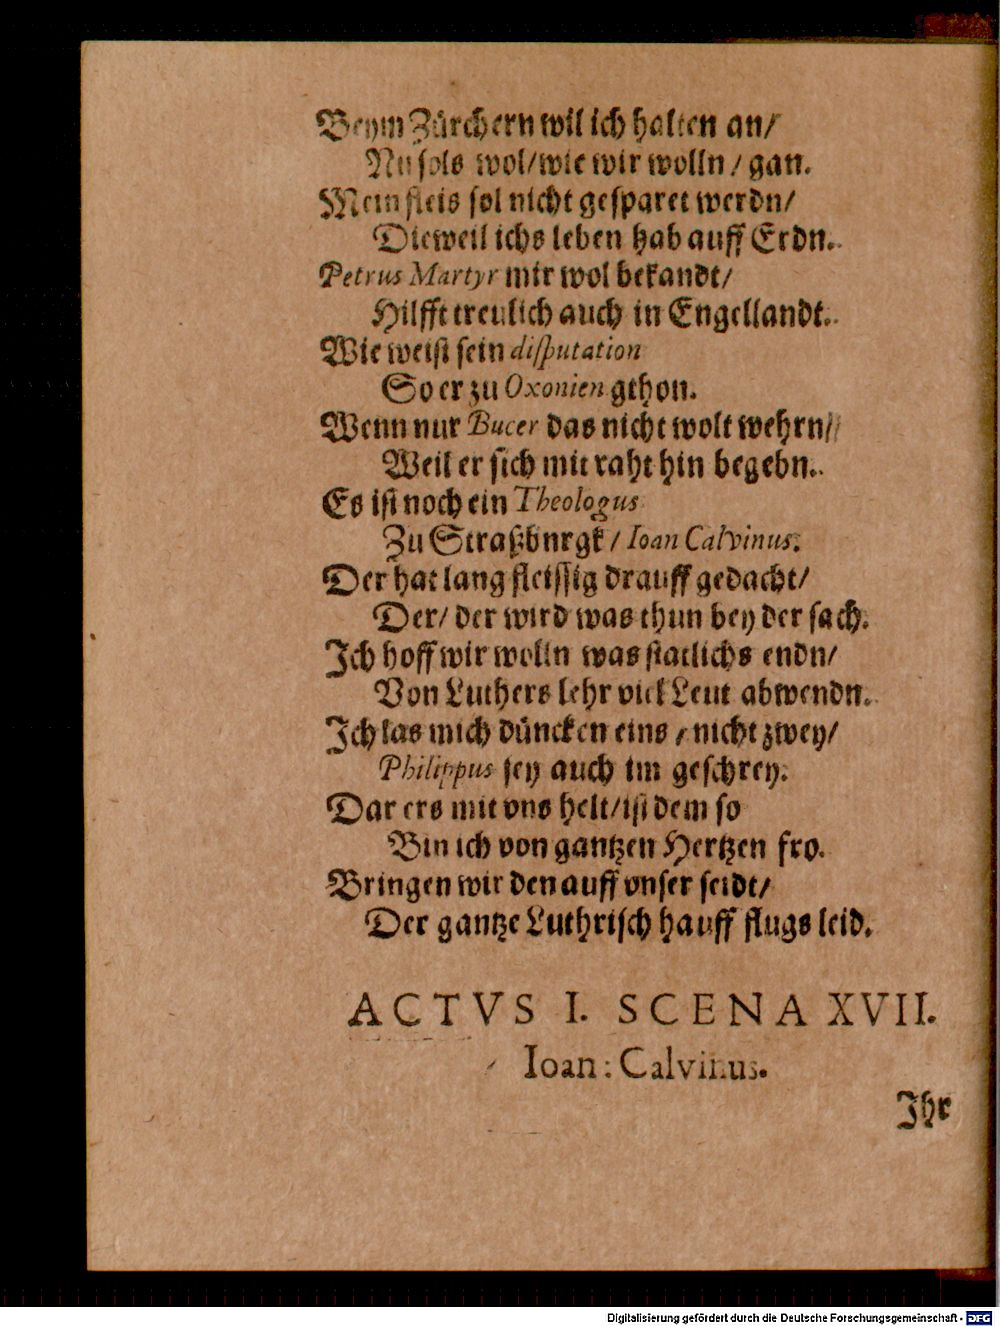 Beym Zürchern wil ich halten an/
Nu sols wol/wie wir wolln/gan.
Mein fleis sol nicht gesparet werdn/
Dieweil ichs leben hab auff Erdn.
Petrus Martyr mir wol bekandt/
Hilfft treulich auch in Engellandt.
Wie weist sein disputation
So er zu Oxonien gthon.
Wenn nur Bucer das nicht wolt wehrn/
Weil er sich mit raht hin begebn.
Es ist noch ein Theologus
Zu Straßbnrgk/Ioan Calvinus.
Der hat lang fleissig drauff gedacht/
Der/der wird was thun bey der sach.
Ich hoff wir wolln was statlichs endn/
Von Luthers lehr viel Leut abwendn.
Ich las mich düncken eins/nicht zwey/
Philippus sey auch im geschrey.
Dar ers mit vns helt/ist dem so
Bin ich von gantzen Hertzen fro.
Bringen wir den auff vnser seidt/
Der gantze Luthrisch hauff flugs leid.
ACTVS I. SCENA XVII.
Ioan: Calvinus.
Ihr
Digitalisierung gefördert durch die Deutsche Forschungsgemeinschaft - DFG